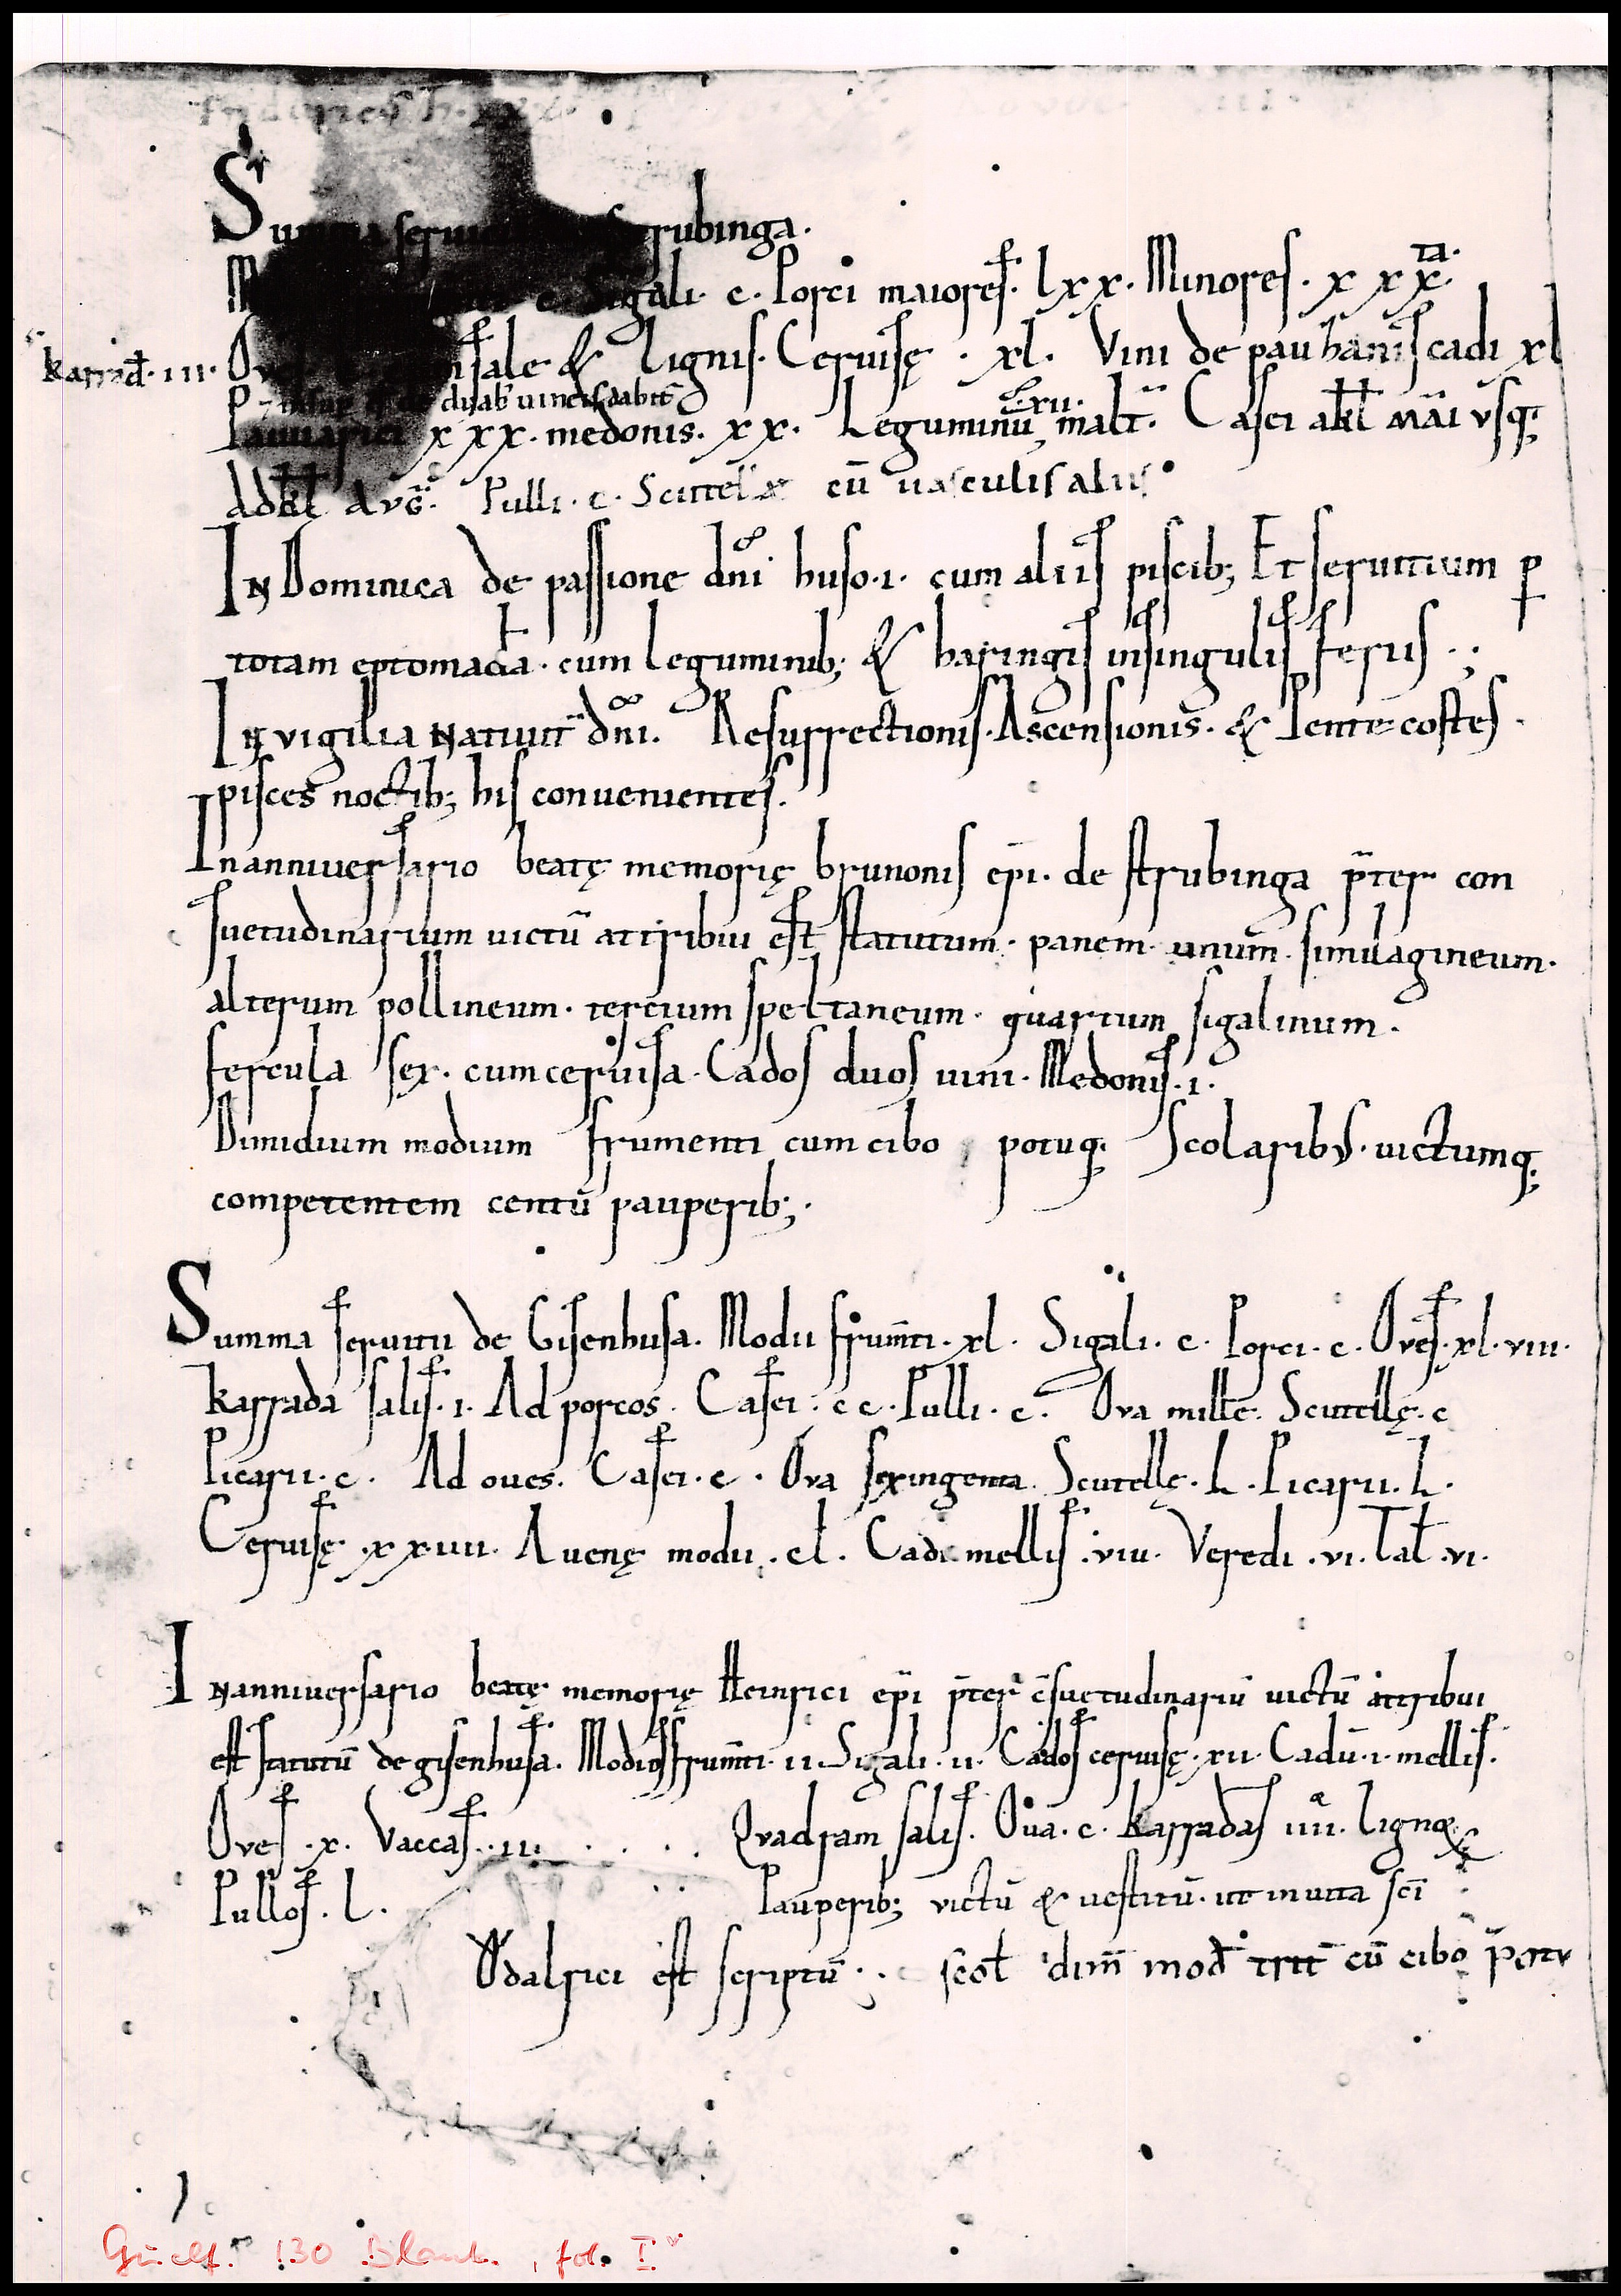 Summa seruitii de strubinga.
c. Sigali. c. Porci maiores. lxx. Minores. xxx. ta.
karrad. iii. Oves sale & lignis. Ceruisę. xl. Vini de pauhanis cadi xl
duab' uincis dabit
xxx. medonis. xx. Leguminū malt̄. xii. Casei a kl mai vsq;
ad kl avḡ. Pulli. c. Scutellæ cū uasculis aliis
IN Dominica de passione dn̄i huso. i. cum aliis piscib; Et seruitium p
totam eptomadā. cum leguminib; & haringis insingulis feriis.;
IN vigilia Natiuit̄ dn̄i. Resurrectionis. Ascensionis. & Pentecostes.
pisces noctib; his conuenientes.
Inanniuersario beatę memorię brunonis ep̄i. de strubinga p̄ter con
suetudinarium uictū attribui est statutum. panem. unum. similagineum.
alterum pollineum. tertium speltaneum. quartum sigalinum.
fercula sex. cumceruisa. Cados duos uini. Medonis. i.
Dimidium modium frumenti cum cibo potuq; Scolaribus. uictumq;
competentem centū pauperib;.
Summa seruitii de Gisenhusa. Modii frum̄ti. xl. Sigali. c. Porci. c. Oves. xl. viii.
karrada salis. i. Ad porcos. Casei. cc. Pulli. c. Ova mille. Scutellę. c
Picarii. c. Ad oues. Casei. c. Ova sexingenta. Scutellę. L. Picarii. L.
Ceruisę. xxiiii. Auenę modii. cl. Cadi mellis. viii. Veredi. vi. Tal̄. vi.
INanniuersario beatę memorię Heinrici ep̄i p̄ter c̄suetudinariū uictū attribui
est statutū de gisenhusa. Modios frum̄ti. ii. Sigali. ii. Cados ceruisę. xii. Cadū. i. mellis.
Oves. x. Vaccas. iii. Qvadram salis. Oua. c. karradas iiii. lignoꝝ
Pullos. l. Pauperib; victū & uestitū. ut inuita sc̄i
Ŏdalrici est scriptū. scol̄ dim̄ mod̄ trit̄ cū cibo potu
Guelf. 130 Blank., fol. Iv